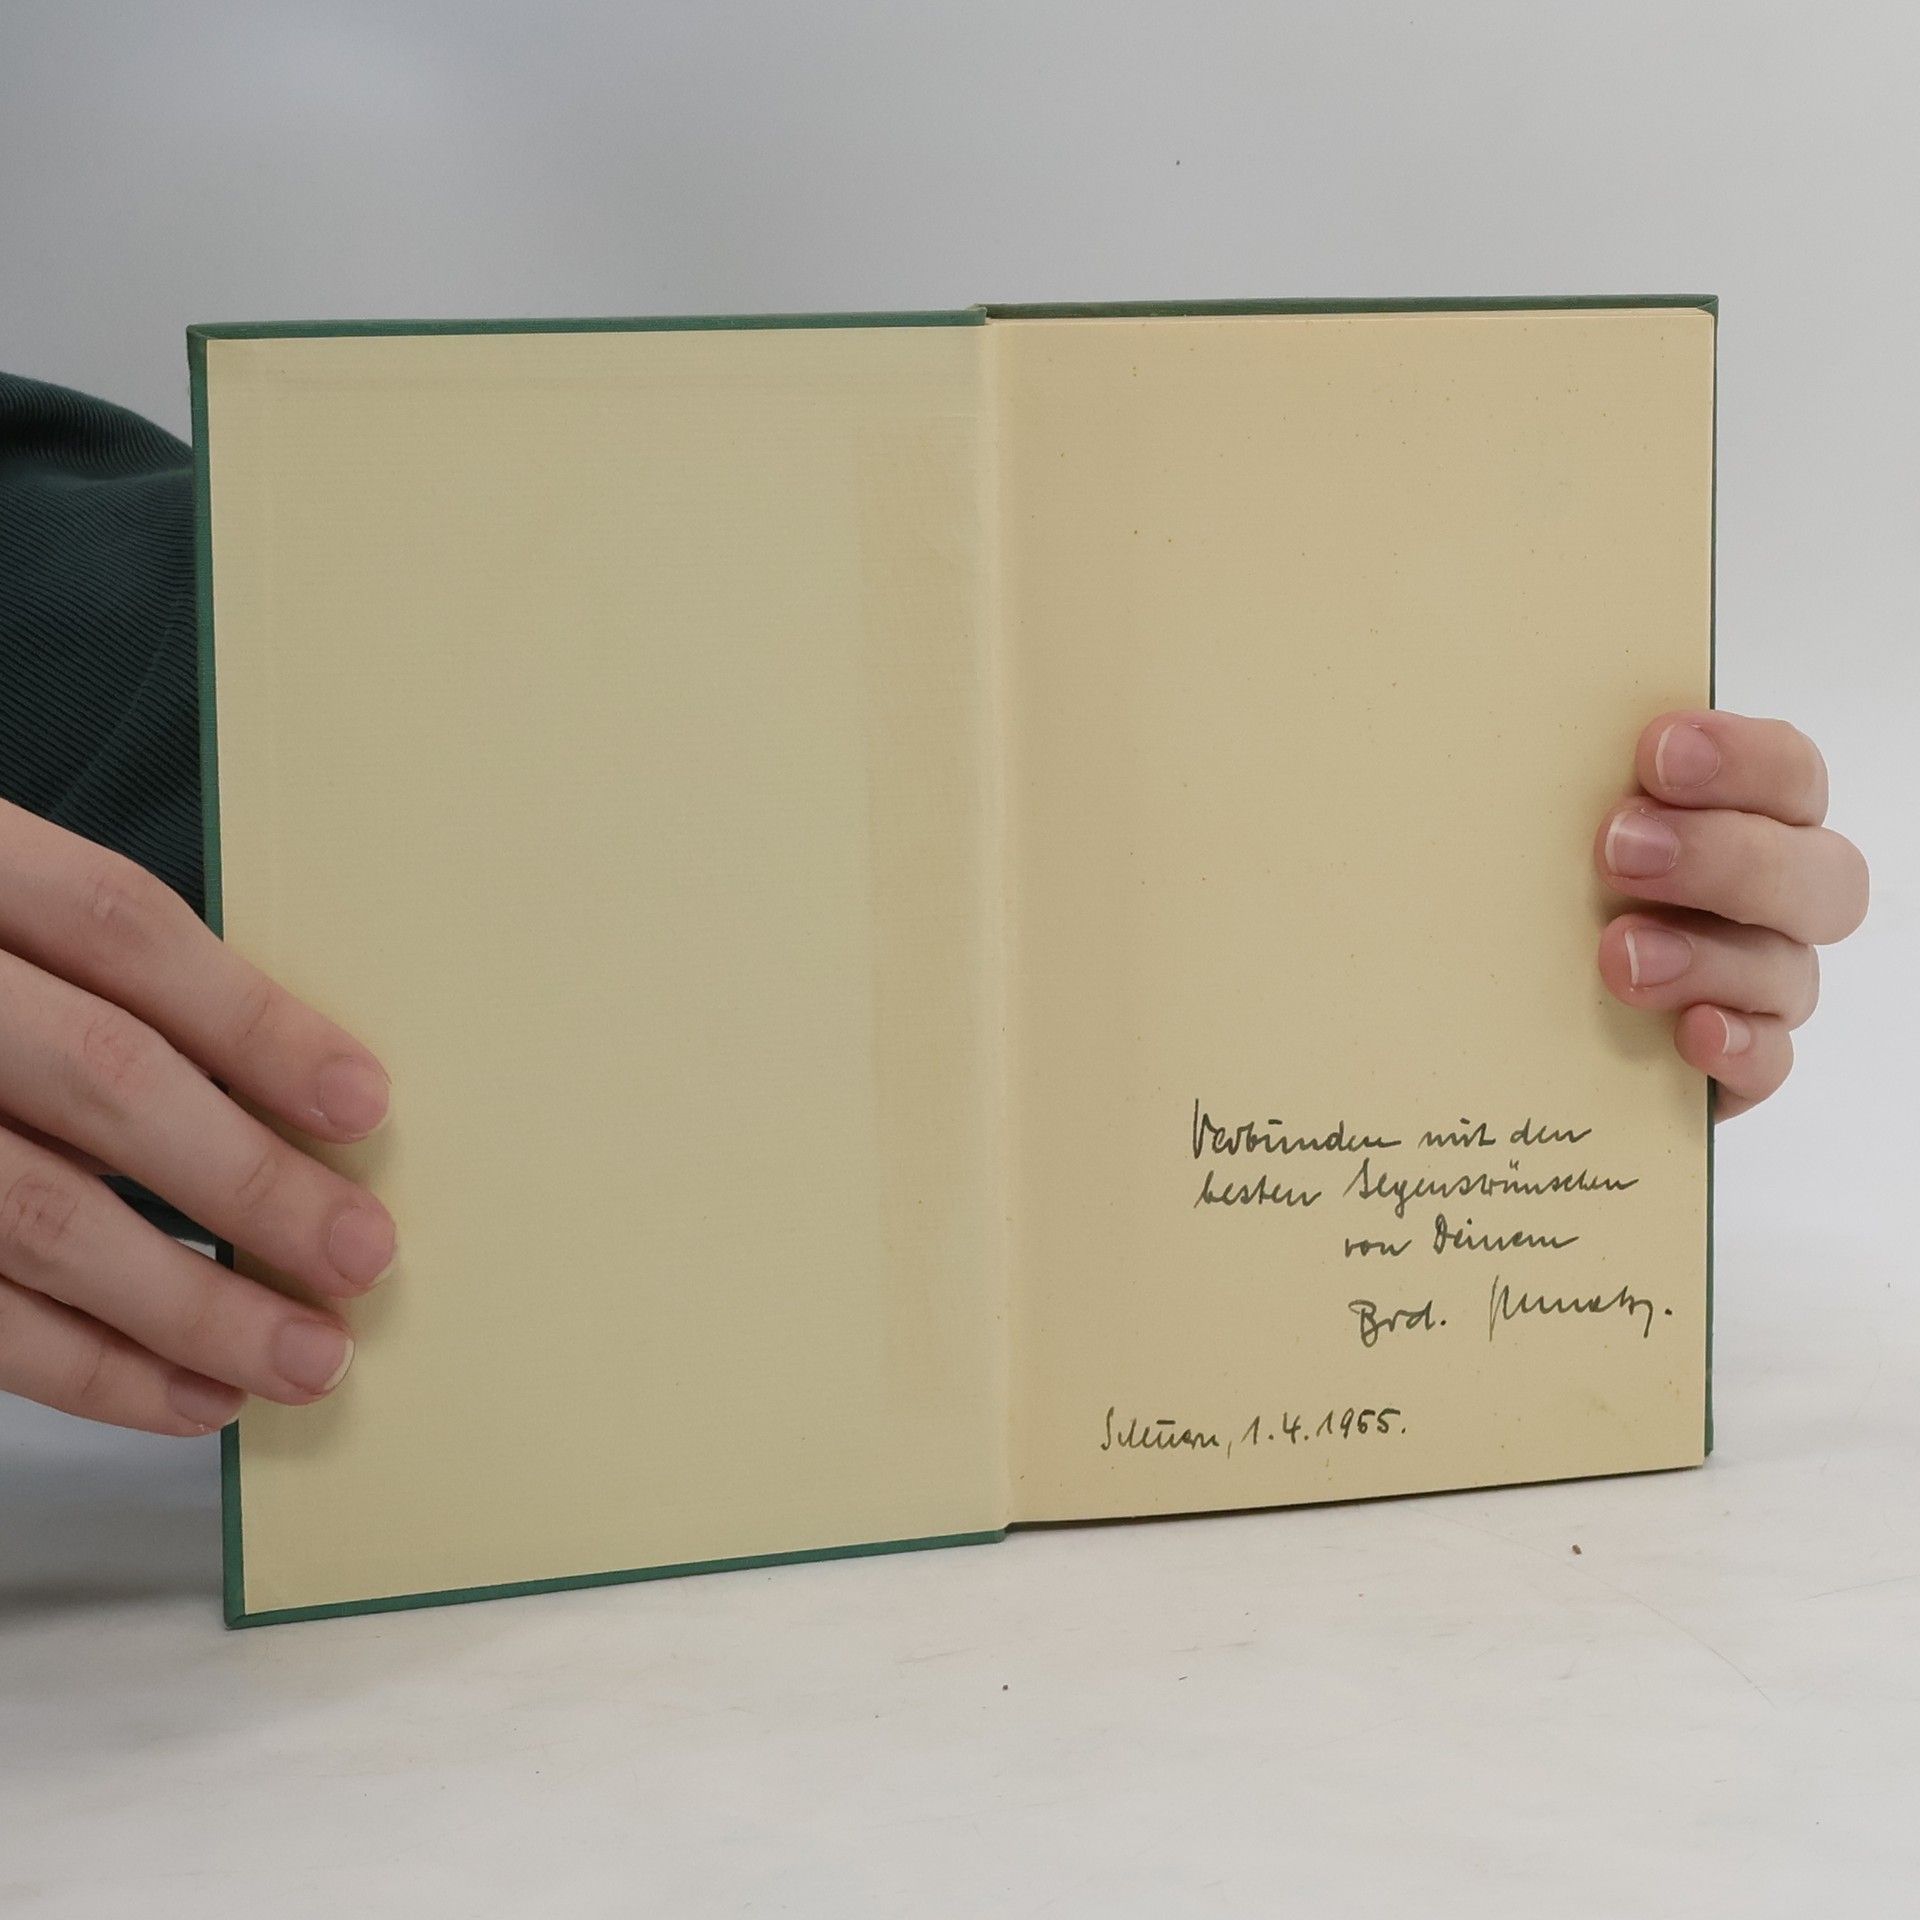 Verbunden mit den
besten Segenswünschen
von Deinem
Brd.
Scheuern, 1.4.1955.